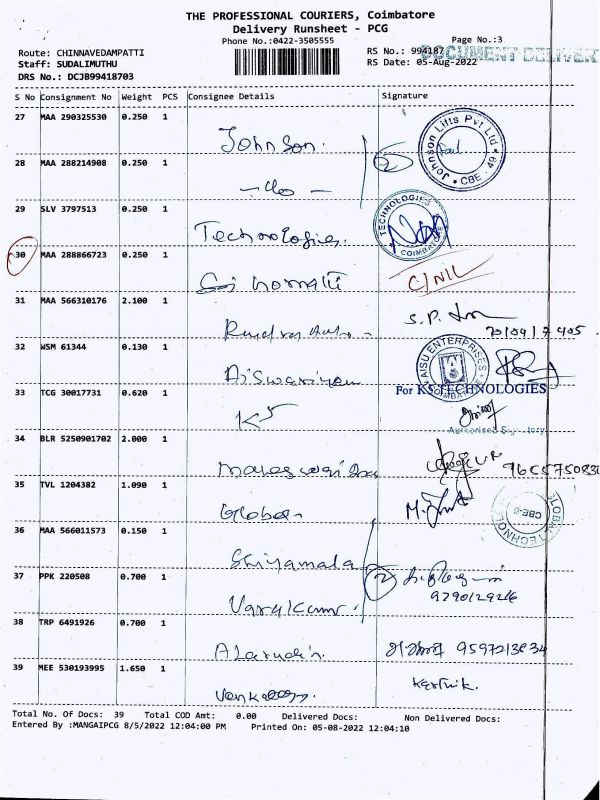 THE PROFESSIONAL COURIERS, Coimbatore
Delivery Runsheet - PCG
Phone No.:0422-3505555
Page No.:3
Route: CHINNAVEDAMPATTI
RS No.: 994187
DOCUMENT DELIVER
Staff: SUDALIMUTHU
RS Date: 05-Aug-2022
DRS No.: DCJB99418703
S No Consignment No Weight PCS Consignee Details Signature
27 MAA 290325530 0.250 1
Johnson.
Johnson Lifts Pvt Ltd CBE - 49
28 MAA 288214908 0.250 1
- do -
29 SLV 3797513 0.250 1
Technologies.
TECHNOLOGIES COIMBATORE
30 MAA 288866723 0.250 1
C/NIL
31 MAA 566310176 2.100 1
S.P.
32 WSM 61344 0.130 1
AISU ENTERPRISES COIMBATORE
33 TCG 30017731 0.620 1
KS
For KS TECHNOLOGIES
Authorised Signatory
34 BLR 5250901702 2.000 1
35 TVL 1204382 1.090 1
Global
GLOBAL TECHNOL CBE-6
36 MAA 566011573 0.150 1
Shiyamala
37 PPK 220508 0.700 1
Varulkumr.
38 TRP 6491926 0.700 1
39 MEE 530193995 1.650 1
Karthik.
Total No. Of Docs: 39 Total COD Amt: 0.00 Delivered Docs: Non Delivered Docs:
Entered By :MANGAIPCG 8/5/2022 12:04:00 PM Printed On: 05-08-2022 12:04:10